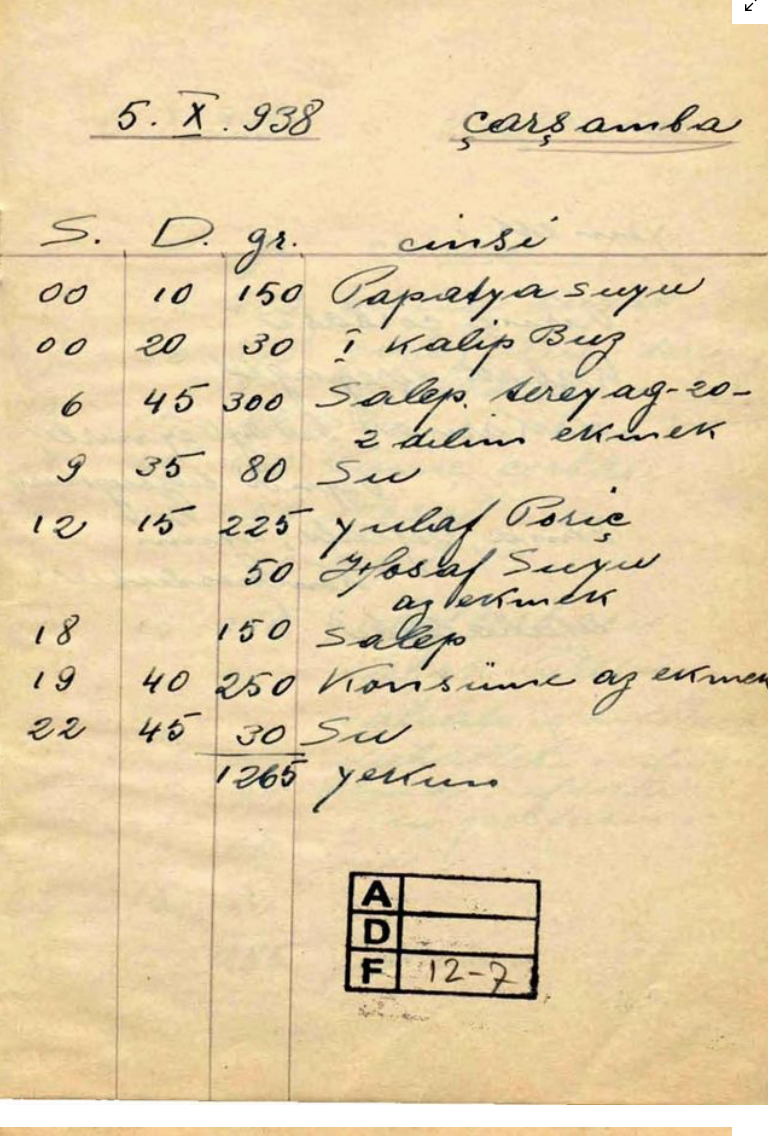 5. X. 938 çarşamba
S. D. gr. cinsi
00 10 150 Papatya suyu
00 20 30 I Kalip Buz
6 45 300 Salep. tereyag-20-
2 dilim ekmek
9 35 80 Su
12 15 225 yulaf Poriç
50 Hosaf Suyu
az ekmek
18 150 Salep
19 40 250 Konsüme az ekmek
22 45 30 Su
1265 yekun
A
D
F 12-7